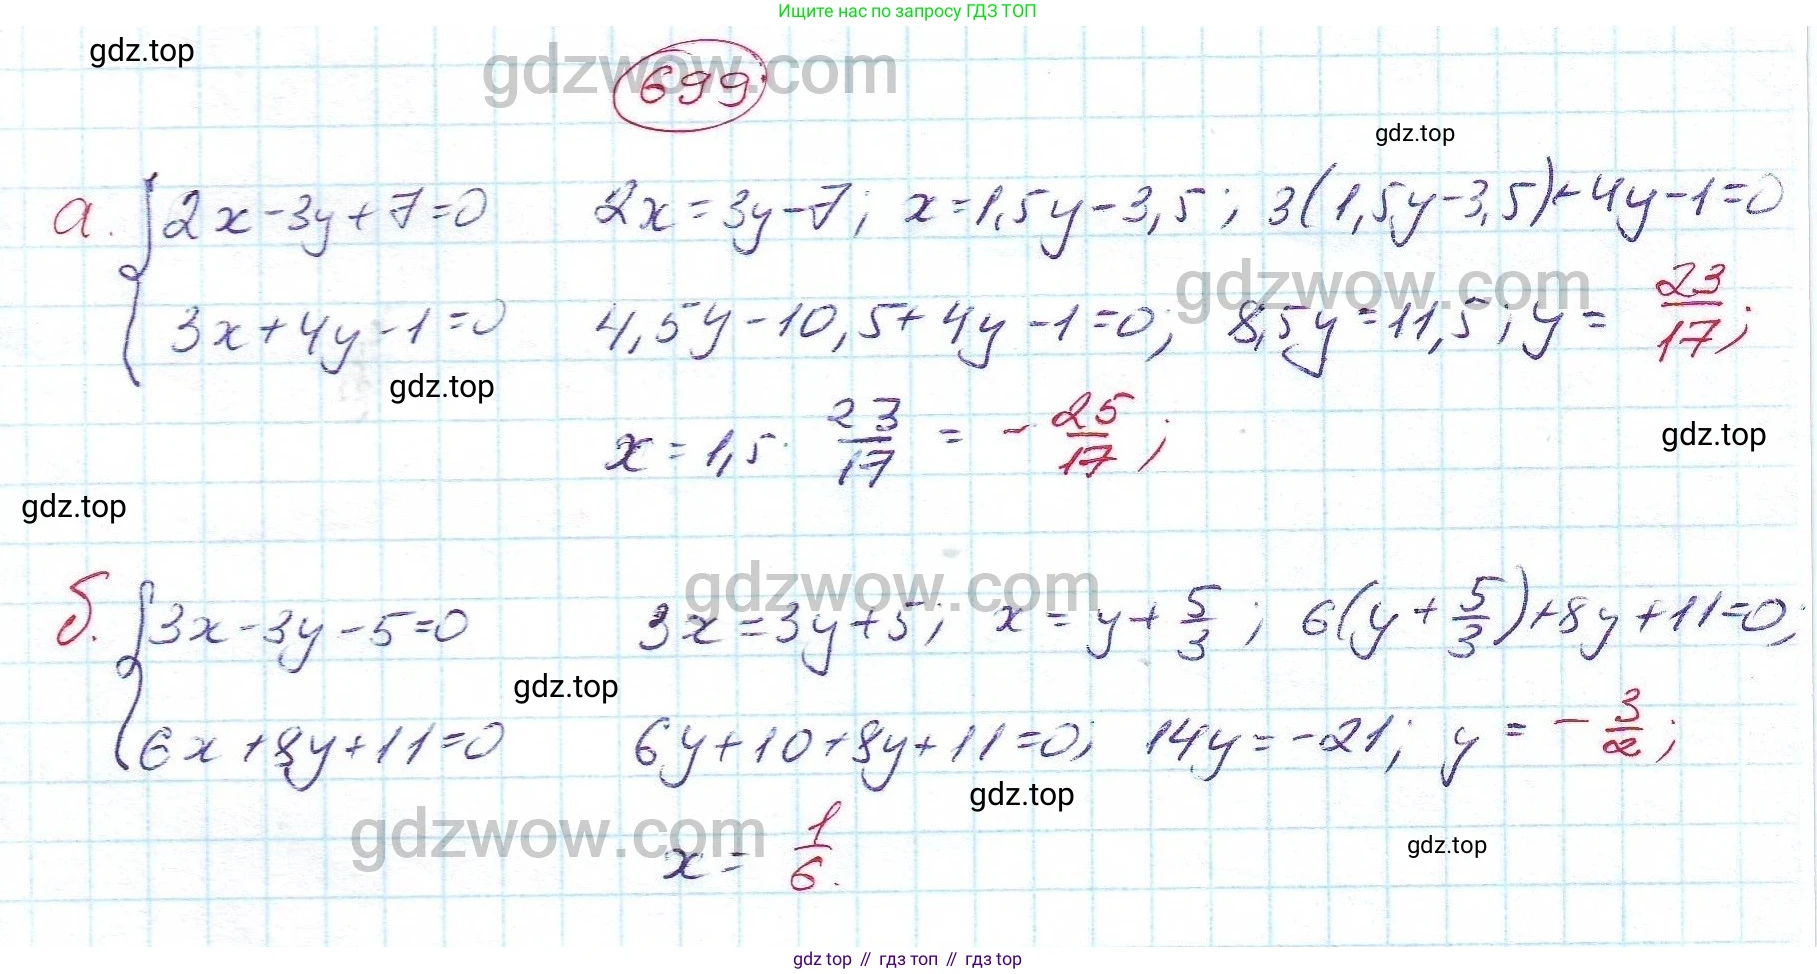 Ищите нас по запросу ГДЗ ТОП
gdz.top
gdzwow.com
699
gdz.top
а. { 2x-3y+7=0 2x=3y-7; x=1,5y-3,5; 3(1,5y-3,5)+4y-1=0
gdzwow.com
3x+4y-1=0 4,5y-10,5+4y-1=0; 8,5y=11,5; y= 23/17;
gdz.top
x=1,5· 23/17 = - 25/17;
gdz.top
gdz.top
gdzwow.com
б. { 3x-3y-5=0 3x=3y+5; x=y+ 5/3; 6(y+ 5/3)+8y+11=0;
gdz.top
6x+8y+11=0 6y+10+8y+11=0; 14y=-21; y= - 3/2;
gdz.top
gdzwow.com
gdz.top
x= 1/6.
gdz top // гдз топ // гдз top